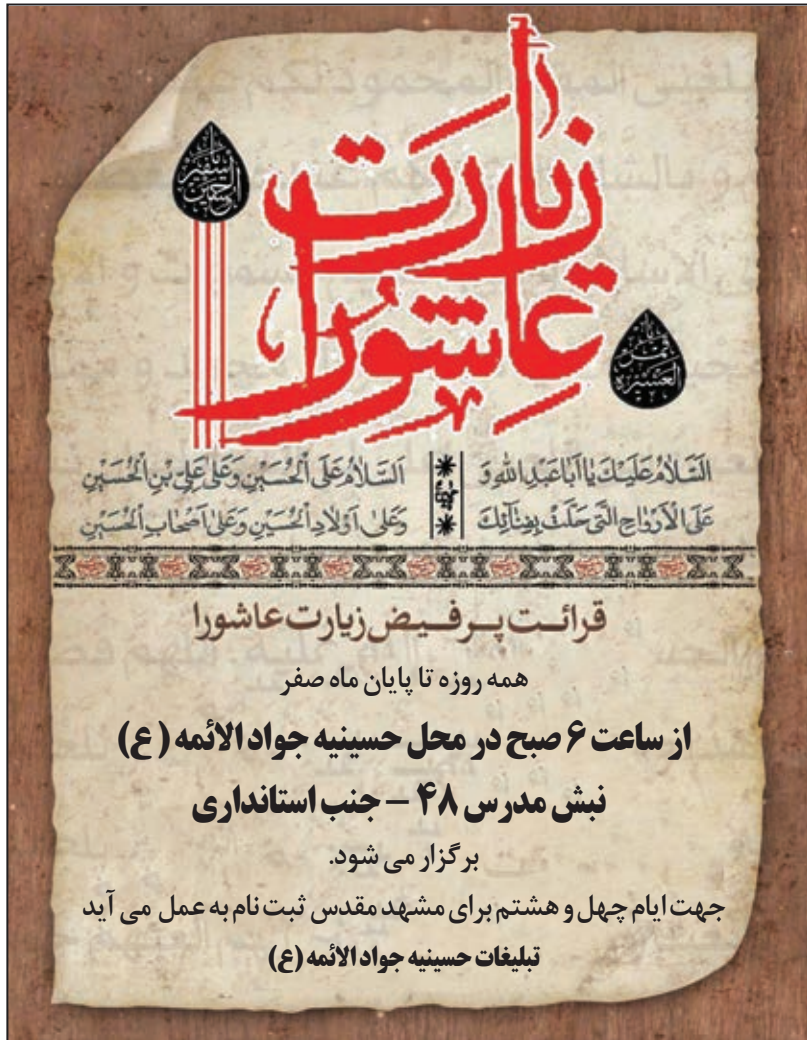 زیارت
عاشورا
یا سفیر الحسین
یا قمر العشیره
اَلسَّلامُ عَلَیْکَ یا اَباعَبْدِ اللهِ وَ
عَلَی الْاَرْواحِ الَّتی حَلَّتْ بِفِنآئِکَ
اَلسَّلامُ عَلَی الْحُسَیْنِ وَ عَلی عَلِیِّ بْنِ الْحُسَیْنِ
وَ عَلی اَوْلادِ الْحُسَیْنِ وَ عَلی اَصْحابِ الْحُسَیْنِ
قرائت پرفیض زیارت عاشورا
همه روزه تا پایان ماه صفر
از ساعت ۶ صبح در محل حسینیه جواد الائمه (ع)
نبش مدرس ۴۸ – جنب استانداری
برگزار می شود.
جهت ایام چهل و هشتم برای مشهد مقدس ثبت نام به عمل می آید
تبلیغات حسینیه جواد الائمه (ع)